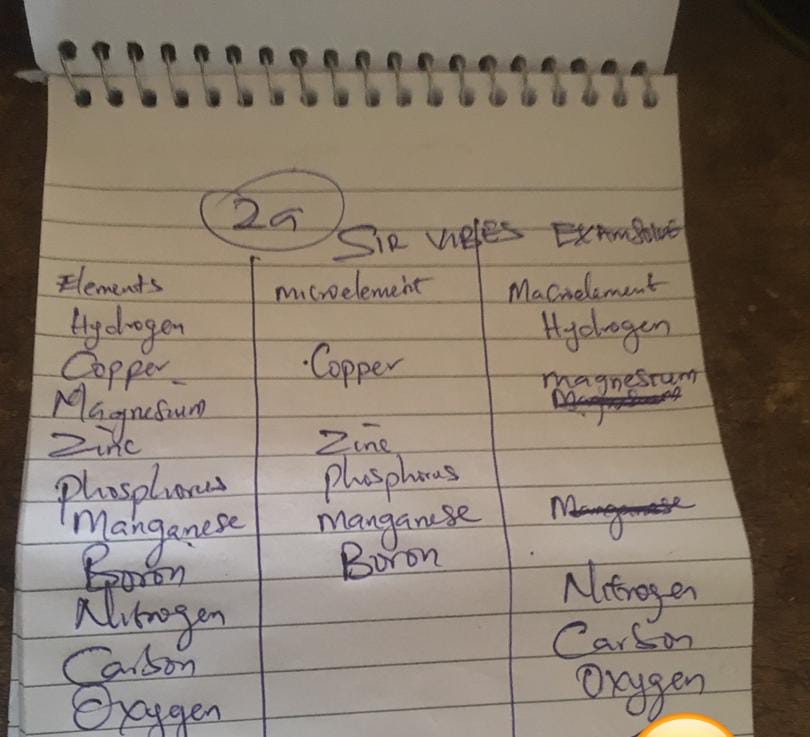 2a
SIR VIBES EXAMSOLVE
Elements microelement Macroelement
Hydrogen Hydrogen
Copper Copper
Magnesium magnesium
Zinc Zinc
Phosphorus Phosphorus
Manganese Manganese Manganese
Boron Boron
Nitrogen Nitrogen
Carbon Carbon
Oxygen Oxygen